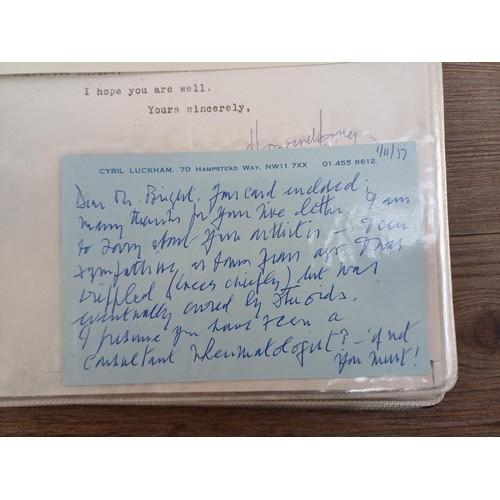 I hope you are well.
Yours sincerely,
1/11/77
CYRIL LUCKHAM, 70 HAMPSTEAD WAY, NW11 7XX 01-455 8612
Dear Mr. Bright, Your card enclosed.
many thanks for your nice letter. I am
so sorry about your arthritis – I can
sympathise, as some years ago I was
crippled (knees chiefly) but was
eventually cured by steroids.
I presume you have seen a
Consultant Rheumatologist? – if not
You Must!